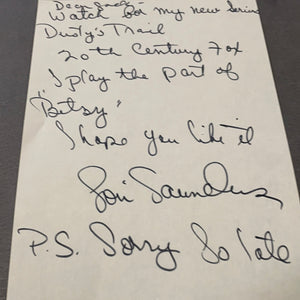 Dear
Watch for my new Series
Dusty's Trail
20th Century Fox
I play the part of
"Betsy"
I hope you like it
Lori Saunders
P.S. Sorry So late